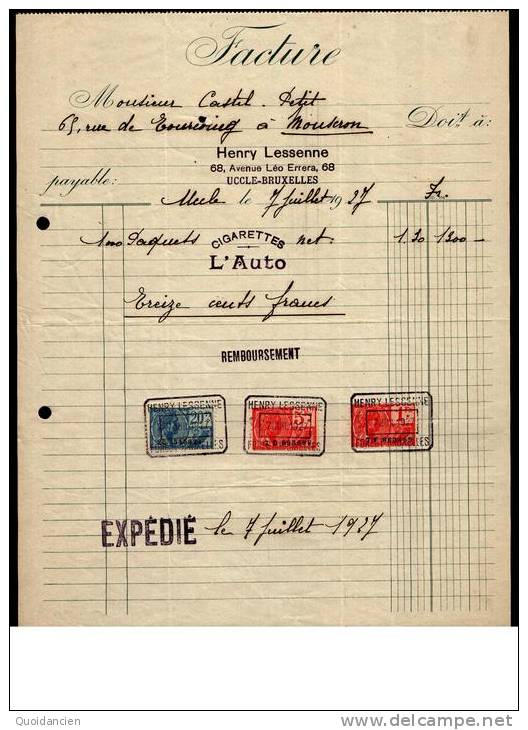 Facture
Monsieur Castel-Petit
65, rue de Tourcoing à Mouscron Doit à:
Henry Lessenne
68, Avenue Léo Errera, 68
UCCLE-BRUXELLES
payable:
Uccle le 7 juillet 1927 Fr.
1000 Paquets CIGARETTES net 1.30 1300 —
L'Auto
Treize cents francs
REMBOURSEMENT
HENRY LESSENNE HENRY LESSENNE HENRY LESSENNE
20 5 1
EXPÉDIÉ le 7 juillet 1927
Quoidancien
www.delcampe.net